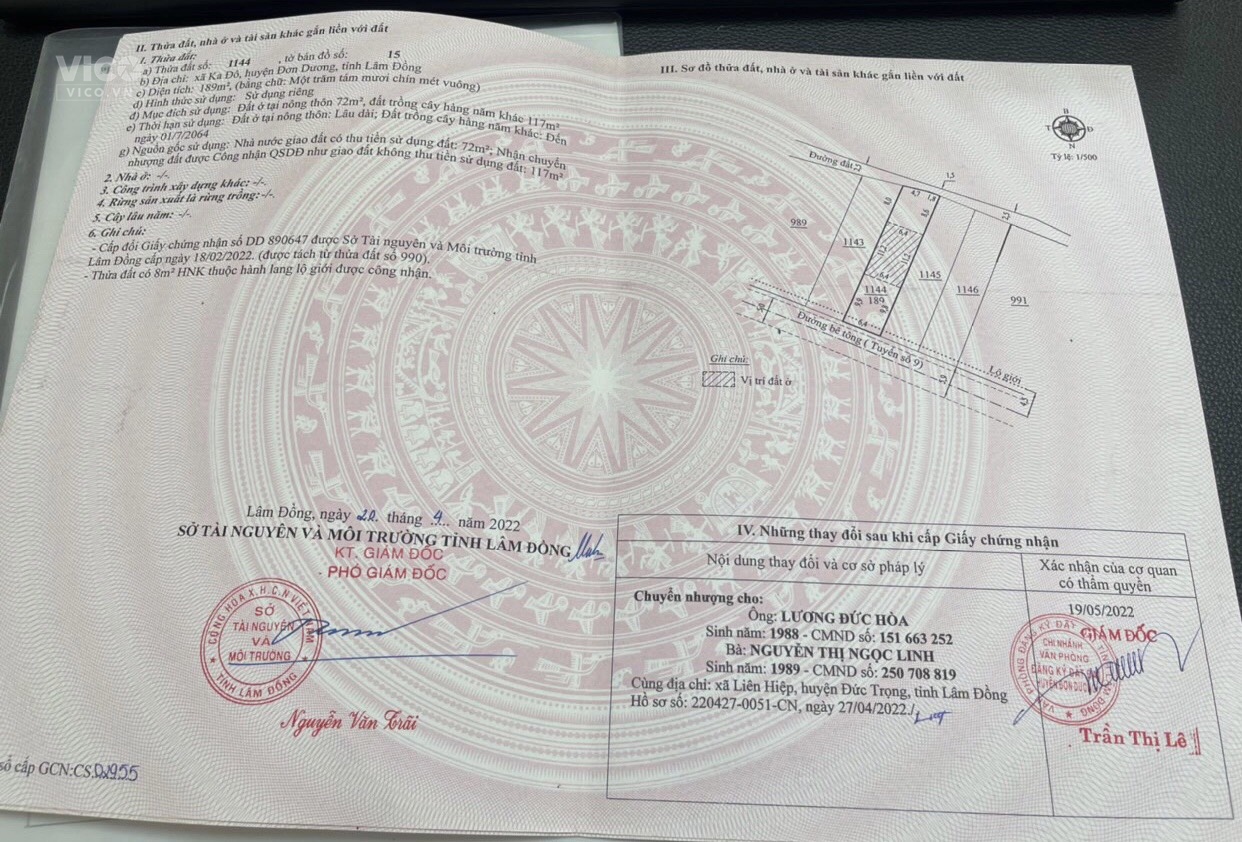 VICO
VICO.VN
II. Thửa đất, nhà ở và tài sản khác gắn liền với đất
1. Thửa đất:
a) Thửa đất số: 1144 , tờ bản đồ số: 15
b) Địa chỉ: xã Ka Đô, huyện Đơn Dương, tỉnh Lâm Đồng
c) Diện tích: 189m², (bằng chữ: Một trăm tám mươi chín mét vuông)
d) Hình thức sử dụng: Sử dụng riêng
đ) Mục đích sử dụng: Đất ở tại nông thôn 72m², đất trồng cây hàng năm khác 117m²
e) Thời hạn sử dụng: Đất ở tại nông thôn: Lâu dài; Đất trồng cây hàng năm khác: Đến
ngày 01/7/2064
g) Nguồn gốc sử dụng: Nhà nước giao đất có thu tiền sử dụng đất: 72m²; Nhận chuyển
nhượng đất được Công nhận QSDĐ như giao đất không thu tiền sử dụng đất: 117m²
2. Nhà ở: -/-.
3. Công trình xây dựng khác: -/-.
4. Rừng sản xuất là rừng trồng: -/-.
5. Cây lâu năm: -/-.
6. Ghi chú:
- Cấp đổi Giấy chứng nhận số DD 890647 được Sở Tài nguyên và Môi trường tỉnh
Lâm Đồng cấp ngày 18/02/2022. (được tách từ thửa đất số 990).
- Thửa đất có 8m² HNK thuộc hành lang lộ giới được công nhận.
Lâm Đồng, ngày 20 tháng 4 năm 2022
SỞ TÀI NGUYÊN VÀ MÔI TRƯỜNG TỈNH LÂM ĐỒNG
KT. GIÁM ĐỐC
PHÓ GIÁM ĐỐC
CỘNG HÒA X.H.C.N VIỆT NAM
SỞ
TÀI NGUYÊN
VÀ
MÔI TRƯỜNG
TỈNH LÂM ĐỒNG
Nguyễn Văn Trãi
số cấp GCN:CS.02955
III. Sơ đồ thửa đất, nhà ở và tài sản khác gắn liền với đất
B
T Đ
N
Tỷ lệ: 1/500
Đường đất
1,5
4,7 1,8
989
1143
6,4
11,2
11,2
6,4
1144
189
1145
1146
991
9,9
9,8
6,4
Đường bê tông ( Tuyến số 9)
Lộ giới
Ghi chú:
Vị trí đất ở
IV. Những thay đổi sau khi cấp Giấy chứng nhận
Nội dung thay đổi và cơ sở pháp lý
Xác nhận của cơ quan
có thẩm quyền
Chuyển nhượng cho:
Ông: LƯƠNG ĐỨC HÒA
Sinh năm: 1988 - CMND số: 151 663 252
Bà: NGUYỄN THỊ NGỌC LINH
Sinh năm: 1989 - CMND số: 250 708 819
Cùng địa chỉ: xã Liên Hiệp, huyện Đức Trọng, tỉnh Lâm Đồng
Hồ sơ số: 220427-0051-CN, ngày 27/04/2022./.
19/05/2022
GIÁM ĐỐC
CHI NHÁNH
VĂN PHÒNG
ĐĂNG KÝ ĐẤT ĐAI
HUYỆN ĐƠN DƯƠNG
Trần Thị Lê